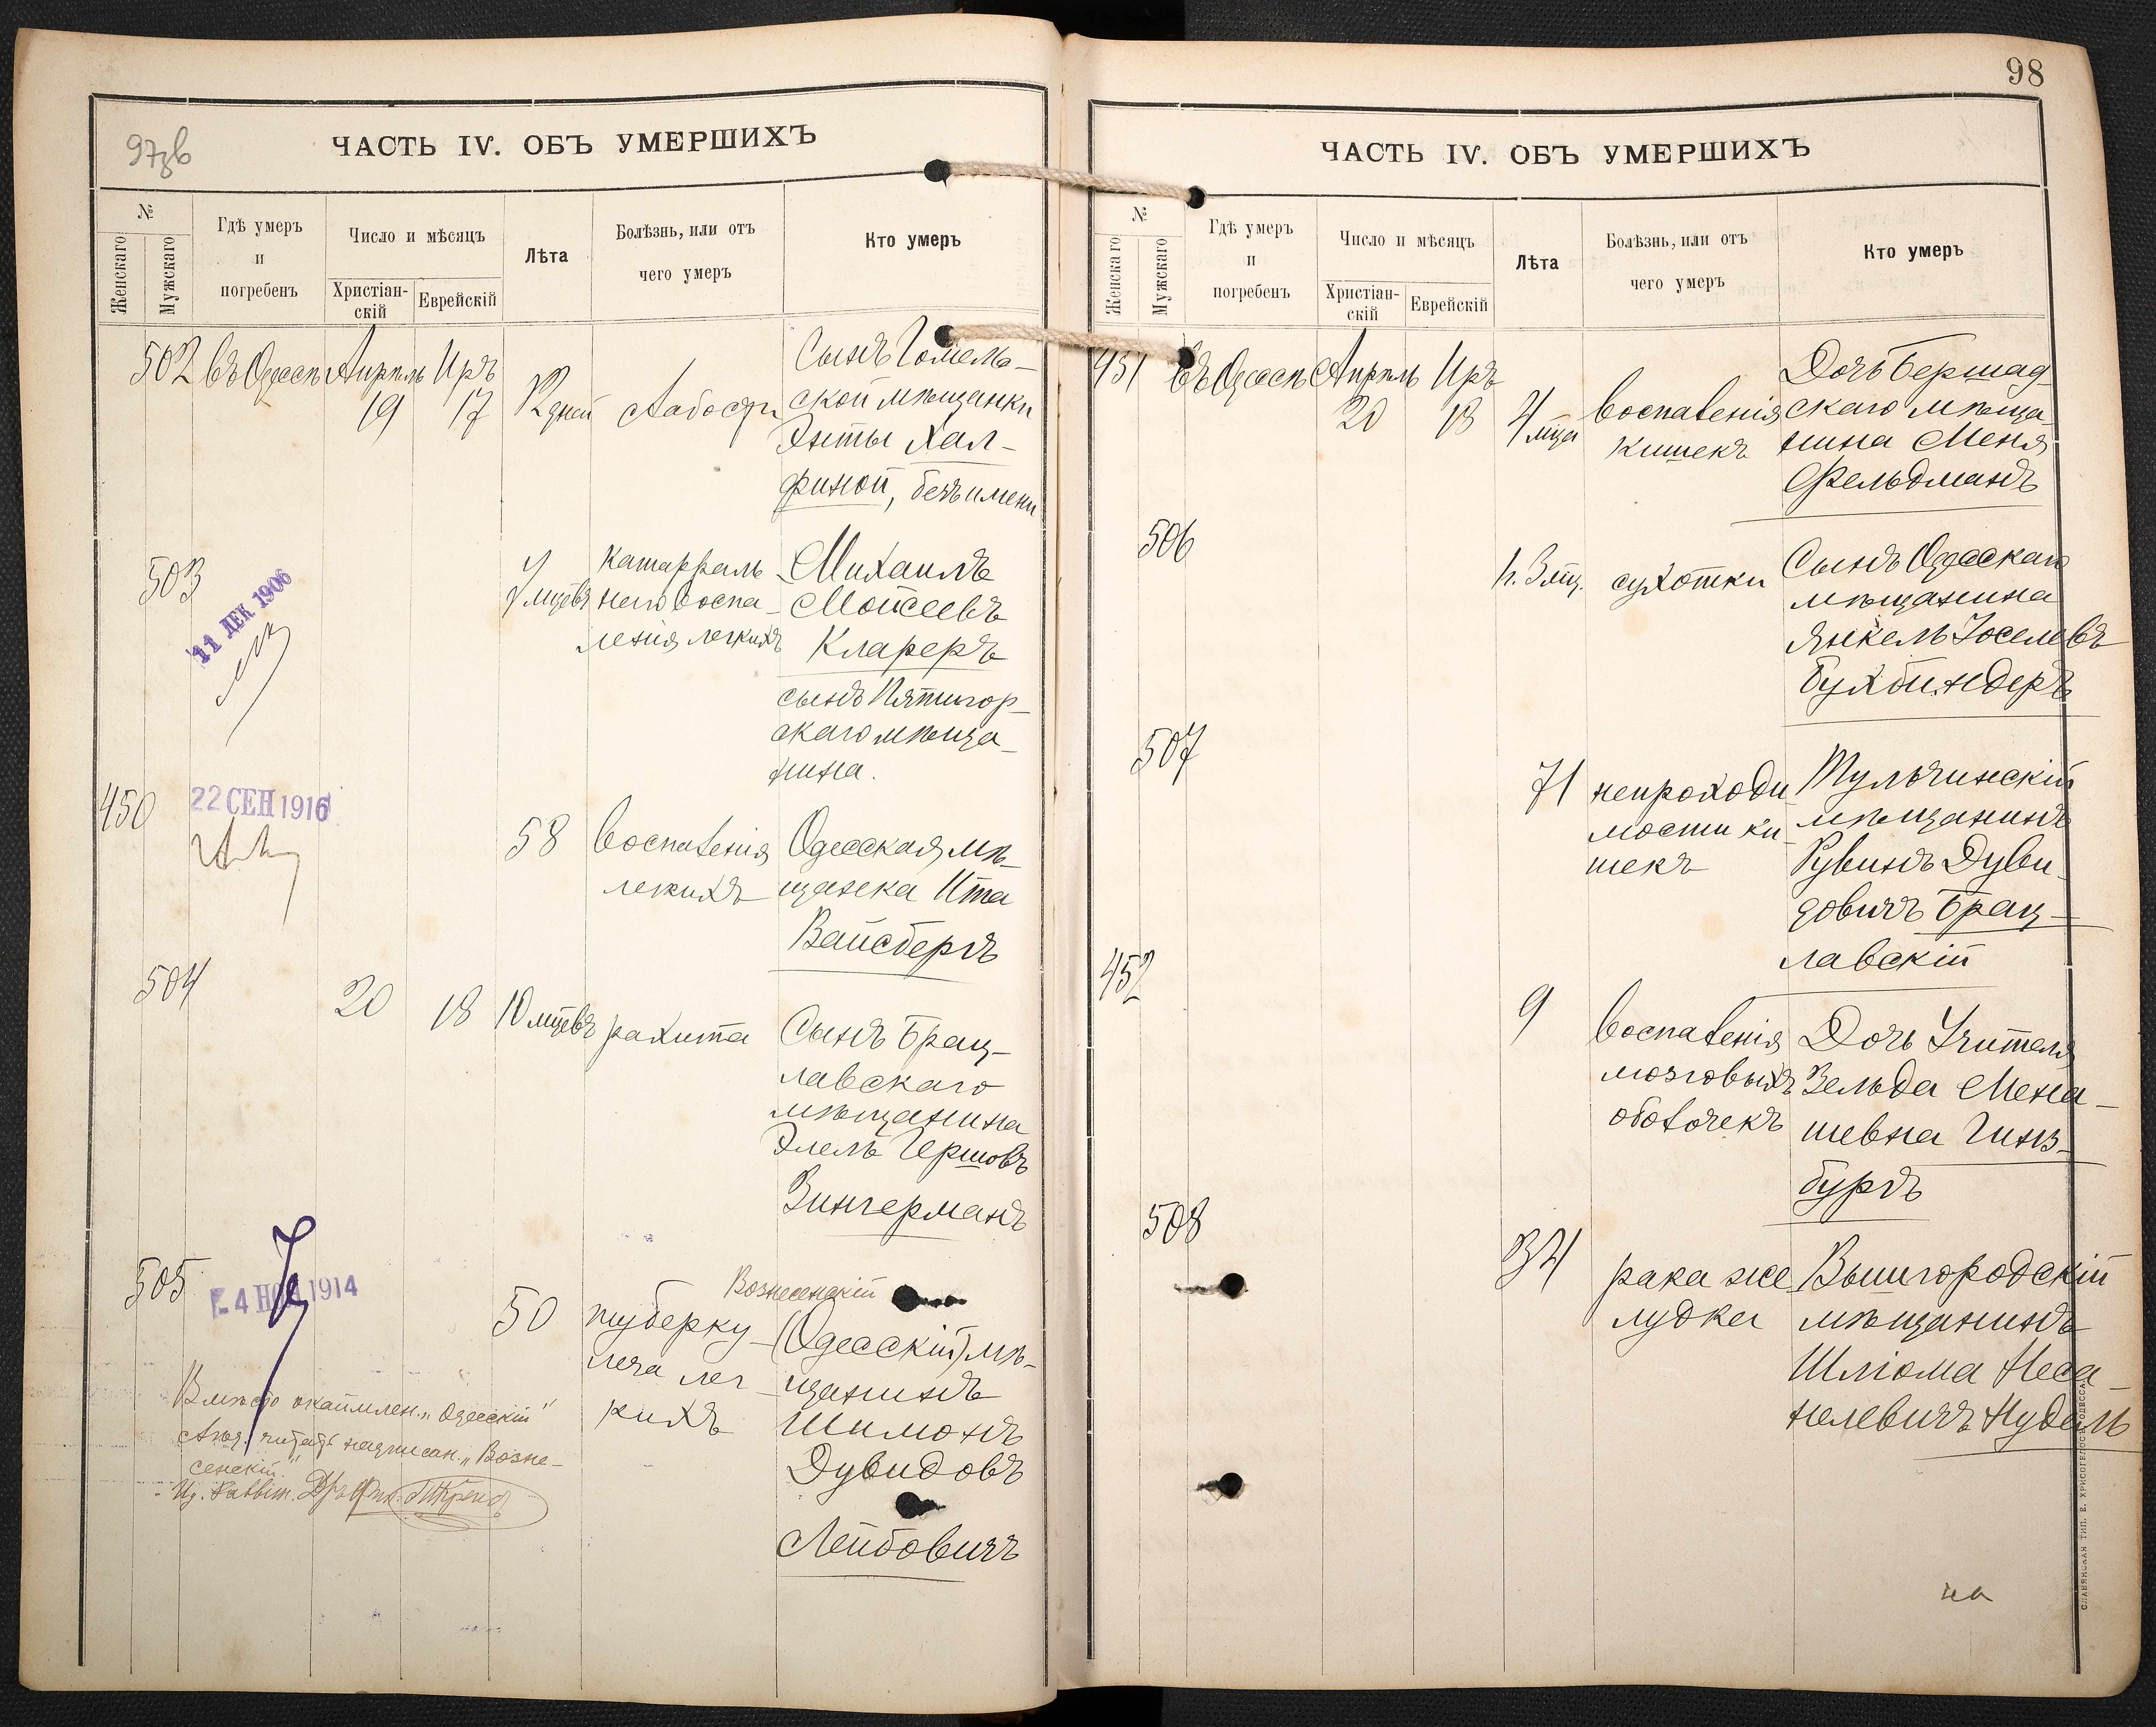 97зв
ЧАСТЬ IV. ОБЪ УМЕРШИХЪ
№
Женскаго
Мужскаго
Гдѣ умеръ
и
погребенъ
Число и мѣсяцъ
Христіан-
скій
Еврейскій
Лѣта
Болѣзнь, или отъ
чего умеръ
Кто умеръ
502 въ Одессѣ Апрѣль Иръ
19 17 дней слабости
Сынъ Гомель-
ской мѣщанки
Энты Хал-
финой, безъ имени
503
11 ДЕК 1906
7 мцевъ
катарраль
наго воспа-
ленія легкихъ
Михаилъ
Моисеевъ
Клареръ
сынъ Пятигор-
скаго мѣща-
нина.
450
22 СЕН 1916
58
воспаленія
легкихъ
Одесская мѣ-
щанка Ита
Вайсбергъ
504
20 18 10 мцевъ рахита
Сынъ Брац-
лавскаго
мѣщанина
Элель Гершовъ
Зингерманъ
505
4 НОЯ 1914
50
туберку-
леза лег-
кихъ
Вознесенскій
(Одесскій) мѣ-
щанинъ
Шимонъ
Дувидовъ
Лейбовичъ
Вмѣсто окаймлен. „Одесскій"
читать надписан. „Возне-
сенскій"
98
ЧАСТЬ IV. ОБЪ УМЕРШИХЪ
№
Женскаго
Мужскаго
Гдѣ умеръ
и
погребенъ
Число и мѣсяцъ
Христіан-
скій
Еврейскій
Лѣта
Болѣзнь, или отъ
чего умеръ
Кто умеръ
451 въ Одессѣ Апрѣль Иръ
20 18 4 мца
воспаленія
кишекъ
Дочь Бершад-
скаго мѣща-
нина Меня
Фельдманъ
506
сухотки
Сынъ Одесскаго
мѣщанина
Янкель Іоселевъ
Бухбиндеръ
507
71
непроходи-
мости ки-
шекъ
Тульчинскій
мѣщанинъ
Рувинъ Дуви-
довичъ Брац-
лавскій
452
9
воспаленія
мозговыхъ
оболочекъ
Дочь Учителя
Зельда Мена-
шевна Гинз-
бургъ
508
34
рака же-
лудка
Вышгородскій
мѣщанинъ
Шліома Неса-
нелевичъ Нудель
СЛАВЯНСКАЯ ТИП. Е. ХРИСОГЕЛОСЪ ОДЕССА